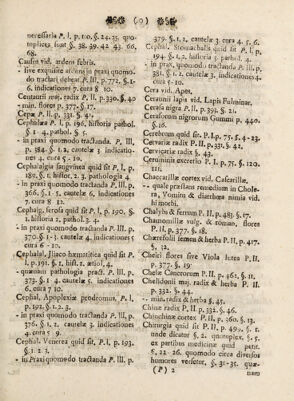 (o)
necessaria P. I. p. 10. §. 24. 35. quotuplices sunt §. 38. 39. 42. 43. 66. 68.
Causus vid. ardens febris.
- sive exquisite ardens in praxi quomodo tractari debeat P. III. p. 77. §. 1. 6. indicationes 7. cura 8 10.
Centaurii min. radix P. II. p. 330. §. 40
- min. flores p. 377. §. 17.
Cepæ P. II. p. 331. §. 41.
Cephalæa P. I. p. 196. historia pathol. § 1 4. pathol. § 5.
- in praxi quomodo tractanda P. III. p. 384. §. 1. 2. cautelæ 3. indicationes 4. cura 5 - 10.
Cephalalgia sanguinea quid sit P. I. p. 189. §. 1. historia 2. 3 pathologia 4
- in praxi quomodo tractanda P. III. p. 366. §. 1-5. cautelæ 6. indicationes 7. cura 8 12.
Cephalg. serosa quid sit P. I. p. 190. §. 1. historia 2. pathol. 3. 4.
- in praxi quomodo tractanda P. III. p. 370. §. 1-3. cautelæ 4. indicationes 5 cura 6 - 10.
Cephalg. Iliaco hæmatitica quid sit P. I. p. 191. §. 1. hist. 2. ætiol. 4.
- quænam pathologia pract. P. III. p. 373. § 1 4. cautelæ 5. indicationes 6. cura 7 10.
Cephal. Apoplexiæ prodromus, P. I. p. 192. §. 1 2 3.
- in praxi quomodo tractanda P. III. p. 376. §. 1. 2. cautelæ 3. indicationes 4 cura 5 9.
Cephal. Venerea quid sit P. I. p. 193. §. 1 2 3.
- in Praxi quomodo tractanda P. III. p.
379. §. 1. 2. cautelæ 3 cura 4. 5. 6.
Cephal. Stomachalis quid sit P. I. p. 194. §. 1. 2. historia 3. pathol 4.
- in prax. quomodo tractanda P. III. p. 381. §. 1. 2. cautelæ 3. indicationes 4. cura - 10.
Cera vid. Apes.
Ceraunii lapis vid. Lapis Fulminar.
Cerasa nigra P. II. p. 439. §. 9.
Cerasorum nigrorum Gummi p. 440. §. 10.
Cerebrum quid sit. P. I. p. 75. §. 4 - 23.
Cervariæ radix P. II. p. 331. §. 42.
Cervicariæ radix §. 43.
Cerumenis excretio P. I. p. 75. §. 120. 111.
Chacarillæ cortex vid. Cascarillæ.
- quale præstans remedium in Cholera, Vomitu & diarrhœa nimia vid. hi morbi.
Chalybs & ferrum P. II. p. 483. §. 17.
Chamomillæ vulg. & roman. flores P. II. p. 377. §. 18.
Chærefolii semen & herba P. II. p. 417. §. 12.
Cheiri flores sive Viola lutea P. II. p. 377. §. 19.
Chelæ Cancrorum P. II. p. 461. §. 11.
Chelidonii maj. radix & herba P. II. p. 332. §. 44.
- min. radix & herba §. 45.
Chinæ radix P. II. p. 332. §. 46.
Chinchinæ cortex P. II. p. 360. §. 13.
Chirurgia quid sit P. II. p. 49. §. 1. unde dicatur §. 2. quotuplex, §. 3. ex partibus medicinæ quid petit. §. 22 26. quomodo circa diversos humores versetur, §. 31-35. quæ-
(P) 2
nam